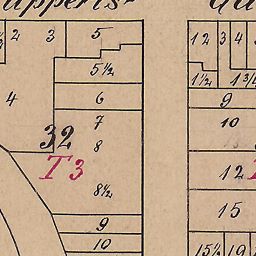 2 3 5
5½
4 6
7
32 8
T3
8½
9
10
1 2 3 4
1½ 1¾
9
10
12
15
15½ 19